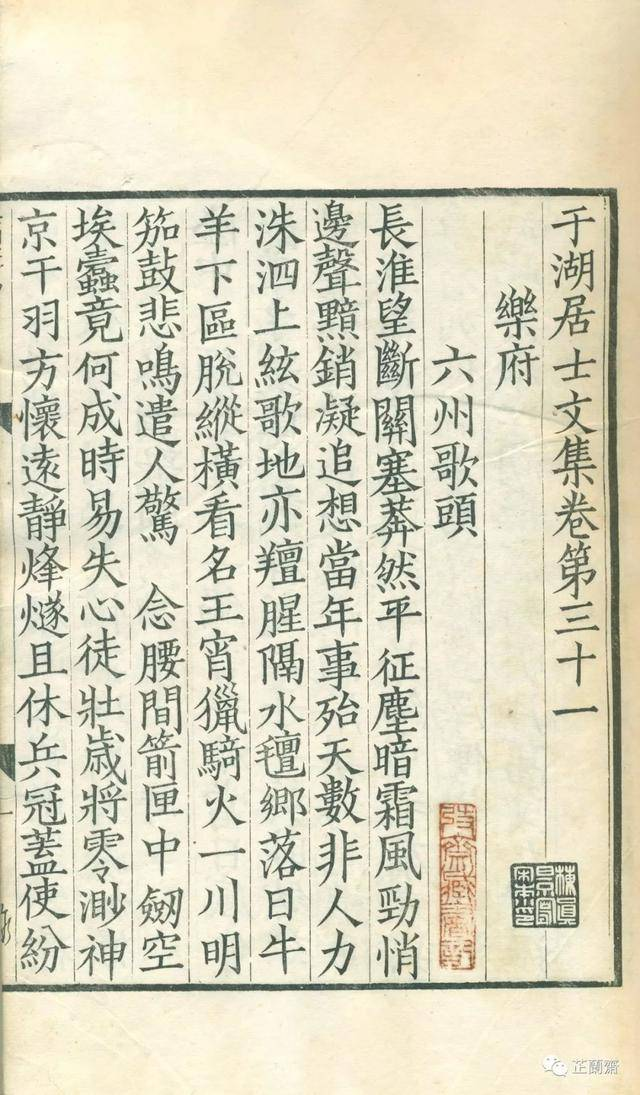 于湖居士文集卷第三十一
樂府
六州歌頭
長淮望斷關塞莽然平征塵暗霜風勁悄
邊聲黯銷凝追想當年事殆天數非人力
洙泗上絃歌地亦羶腥隔水氊鄉落日牛
羊下區脫縱橫看名王宵獵騎火一川明
笳鼓悲鳴遣人驚 念腰間箭匣中劒空
埃蠹竟何成時易失心徒壯歲將零渺神
京干羽方懷遠靜烽燧且休兵冠蓋使紛
芷蘭齋